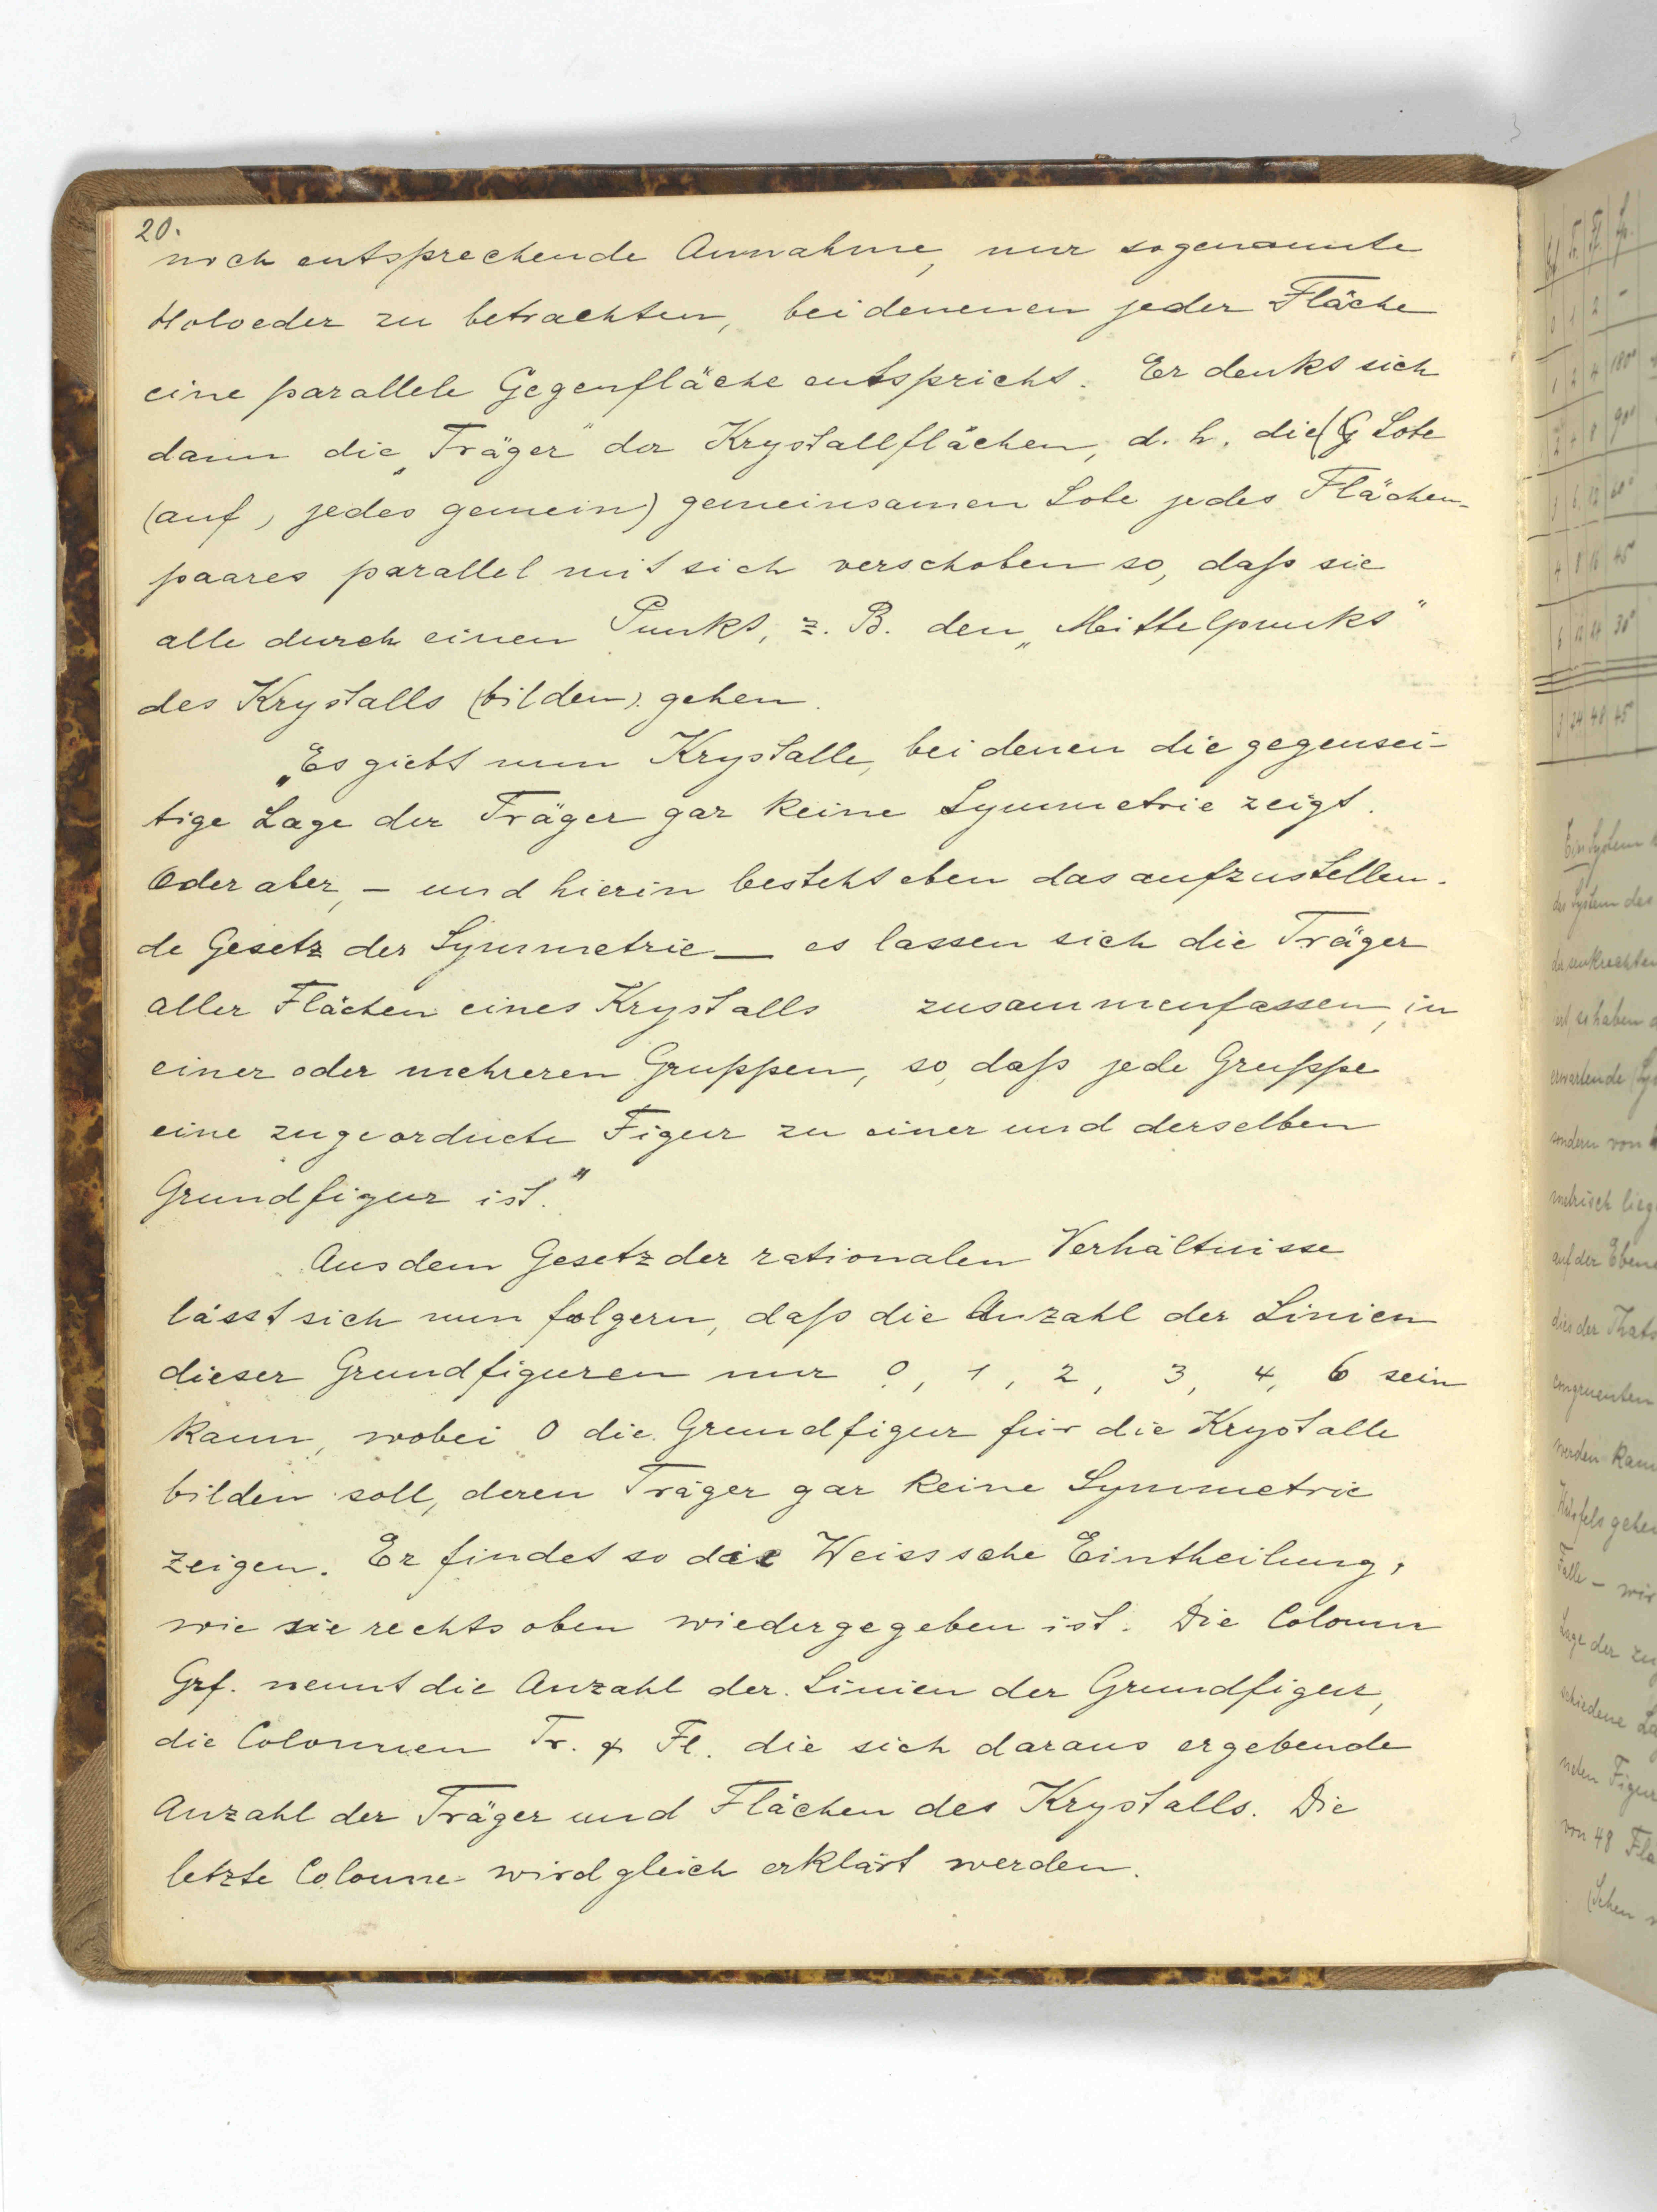 20.
noch entsprechende Annahme, nur sogenannte
Holoeder zu betrachten, bei denenen jeder Fläche
eine parallele Gegenfläche entspricht. Er denkt sich
dann die „Träger" der Krystallflächen, d. h. die (G Lote
(auf, jedes gemein) gemeinsamen Lote jedes Flächen-
paares parallel mit sich verschoben so, daſs sie
alle durch einen Punkt, z. B. den „Mittelpunkt"
des Krystalls (bilden). gehen.
„Es giebt nun Krystalle, bei denen die gegensei-
tige Lage der Träger gar keine Symmetrie zeigt.
Oder aber, – und hierin besteht eben das aufzustellen-
de Gesetz der Symmetrie – es lassen sich die Träger
aller Flächen eines Krystalls zusammenfassen, in
einer oder mehreren Gruppen, so, daſs jede Gruppe
eine zugeordnete Figur zu einer und derselben
Grundfigur ist."
Aus dem Gesetz der rationalen Verhältnisse
lässt sich nun folgern, daſs die Anzahl der Linien
dieser Grundfiguren nur 0, 1, 2, 3, 4, 6 sein
kann, wobei 0 die Grundfigur für die Krystalle
bilden soll, deren Träger gar keine Symmetrie
zeigen. Er findet so die Weisssche Eintheilung,
wie sie rechts oben wiedergegeben ist. Die Colonn
Grf. nennt die Anzahl der Linien der Grundfigur,
die Colonnen Tr. & Fl. die sich daraus ergebende
Anzahl der Träger und Flächen des Krystalls. Die
letzte Colonne wird gleich erklärt werden.
Ein System
das System des
der senkrechten
ist, so haben
erwartende
sondern von
metrisch lieg
auf der Ebene
dies der Thats
congruenten
werden kann
Würfels gehen
Falle – wir
Lage der zu
schiedene La
neten Figur
von 48 Flä
(Sehen